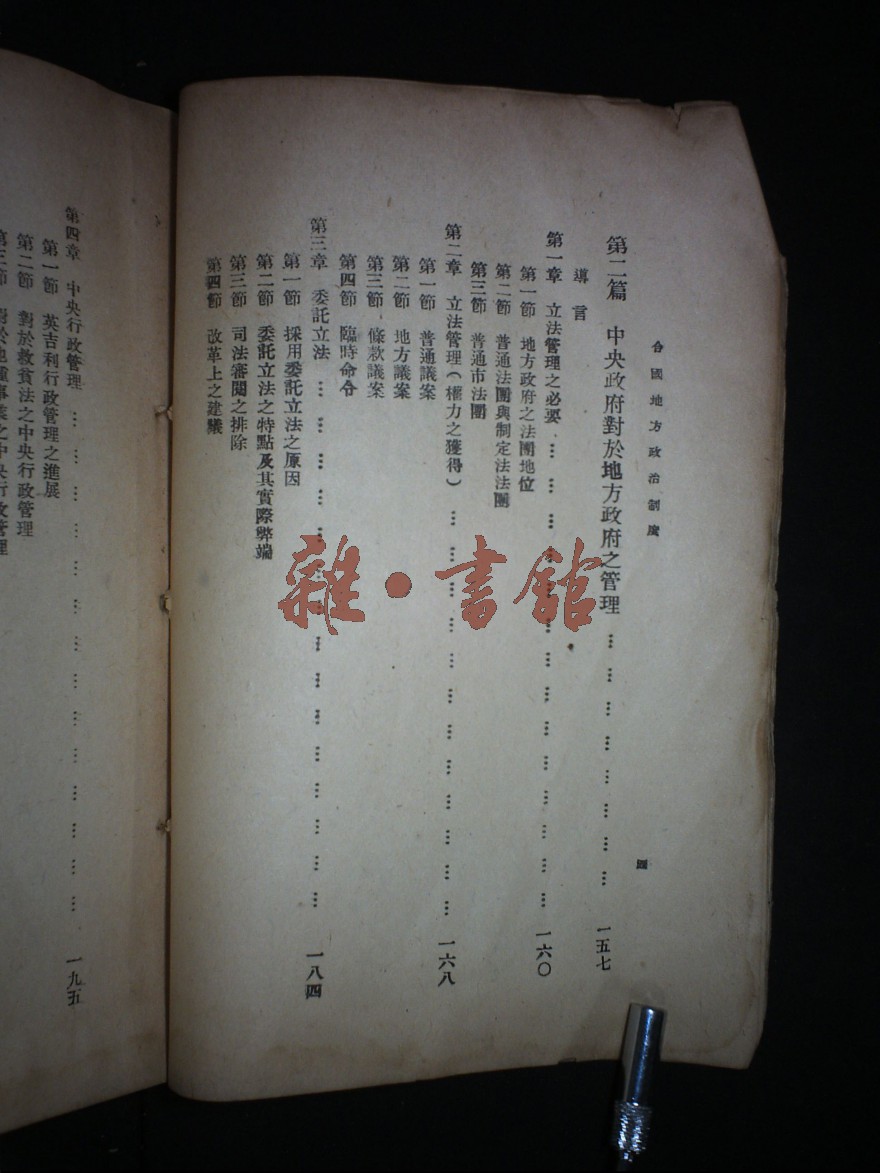 國地方政治制度
四
第二篇 中央政府對於地方政府之管理 … … … … … … … 一五七
導言
第一章 立法管理之必要 … … … … … … … … … … … … 一六〇
第一節 地方政府之法團地位
第二節 普通法團與制定法法團
第三節 普通市法團
第二章 立法管理(權力之獲得) … … … … … … … … … … … 一六八
第一節 普通議案
第二節 地方議案
第三節 條款議案
第四節 臨時命令
第三章 委託立法 … … … … … … … … … … … … … … 一八四
第一節 採用委託立法之原因
第二節 委託立法之特點及其實際弊端
第三節 司法審閱之排除
第四節 改革上之建議
第四章 中央行政管理 … … … … … … … … … … … … … … 一九五
第一節 英吉利行政管理之進展
第二節 對於救貧法之中央行政管理
第三節 對於地種事業之中央行政管理
雜·書館